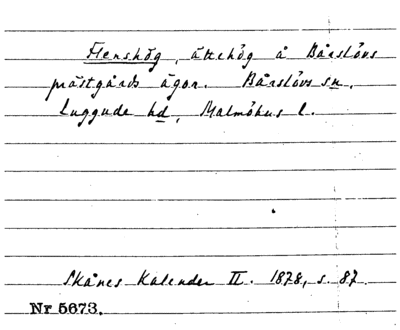 Flenshög, ättehög å Bårslövs
prästgårds ägor. Bårslövs sn,
Luggude hd, Malmöhus l.
Skånes Kalender II. 1878, s. 87.
Nr 5673.